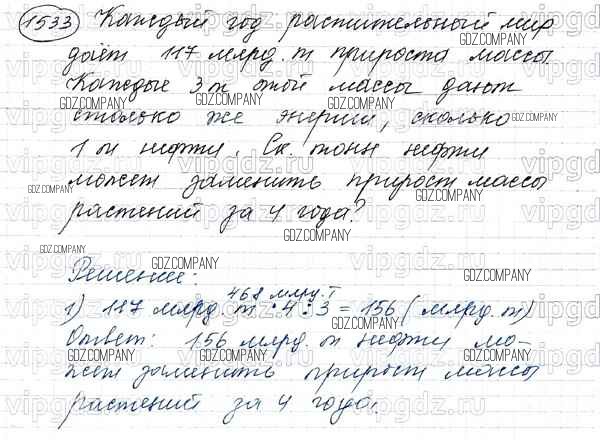 1533 Каждый год растительный мир
даёт 117 млрд. т прироста массы.
Каждые 3 т этой массы дают
столько же энергии, сколько
1 т нефти. Ск. тонн нефти
может заменить прирост массы
растений за 4 года?
Решение:
468 млрд. т
1) 117 млрд. т · 4 : 3 = 156 (млрд. т)
Ответ: 156 млрд. т нефти мо-
жет заменить прирост массы
растений за 4 года.
GDZ.COMPANY
vipgdz.ru